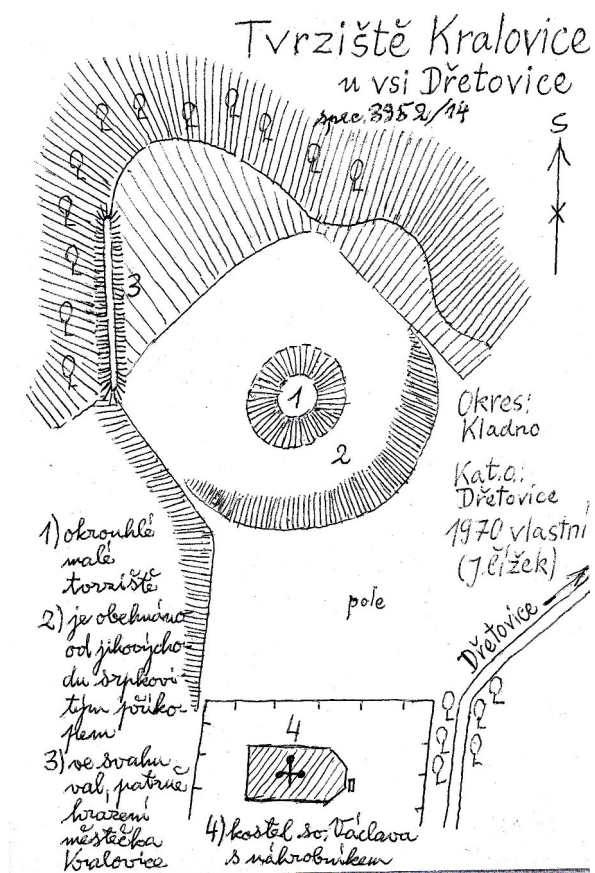 Tvrziště Kralovice
u vsi Dřetovice
spec. 3952/14
S
3
1
2
Okres:
Kladno
Kat.o.:
Dřetovice
1970 vlastní
(J. Čížek)
1) okrouhlé
malé
tvrziště
2) je obehnáno
od jihovýcho-
du srpkovi-
tým příko-
pem
3) ve svahu
val, patrně
hrazení
městečka
Kralovice
pole
Dřetovice
4
4) kostel sv. Václava
s náhrobníkem